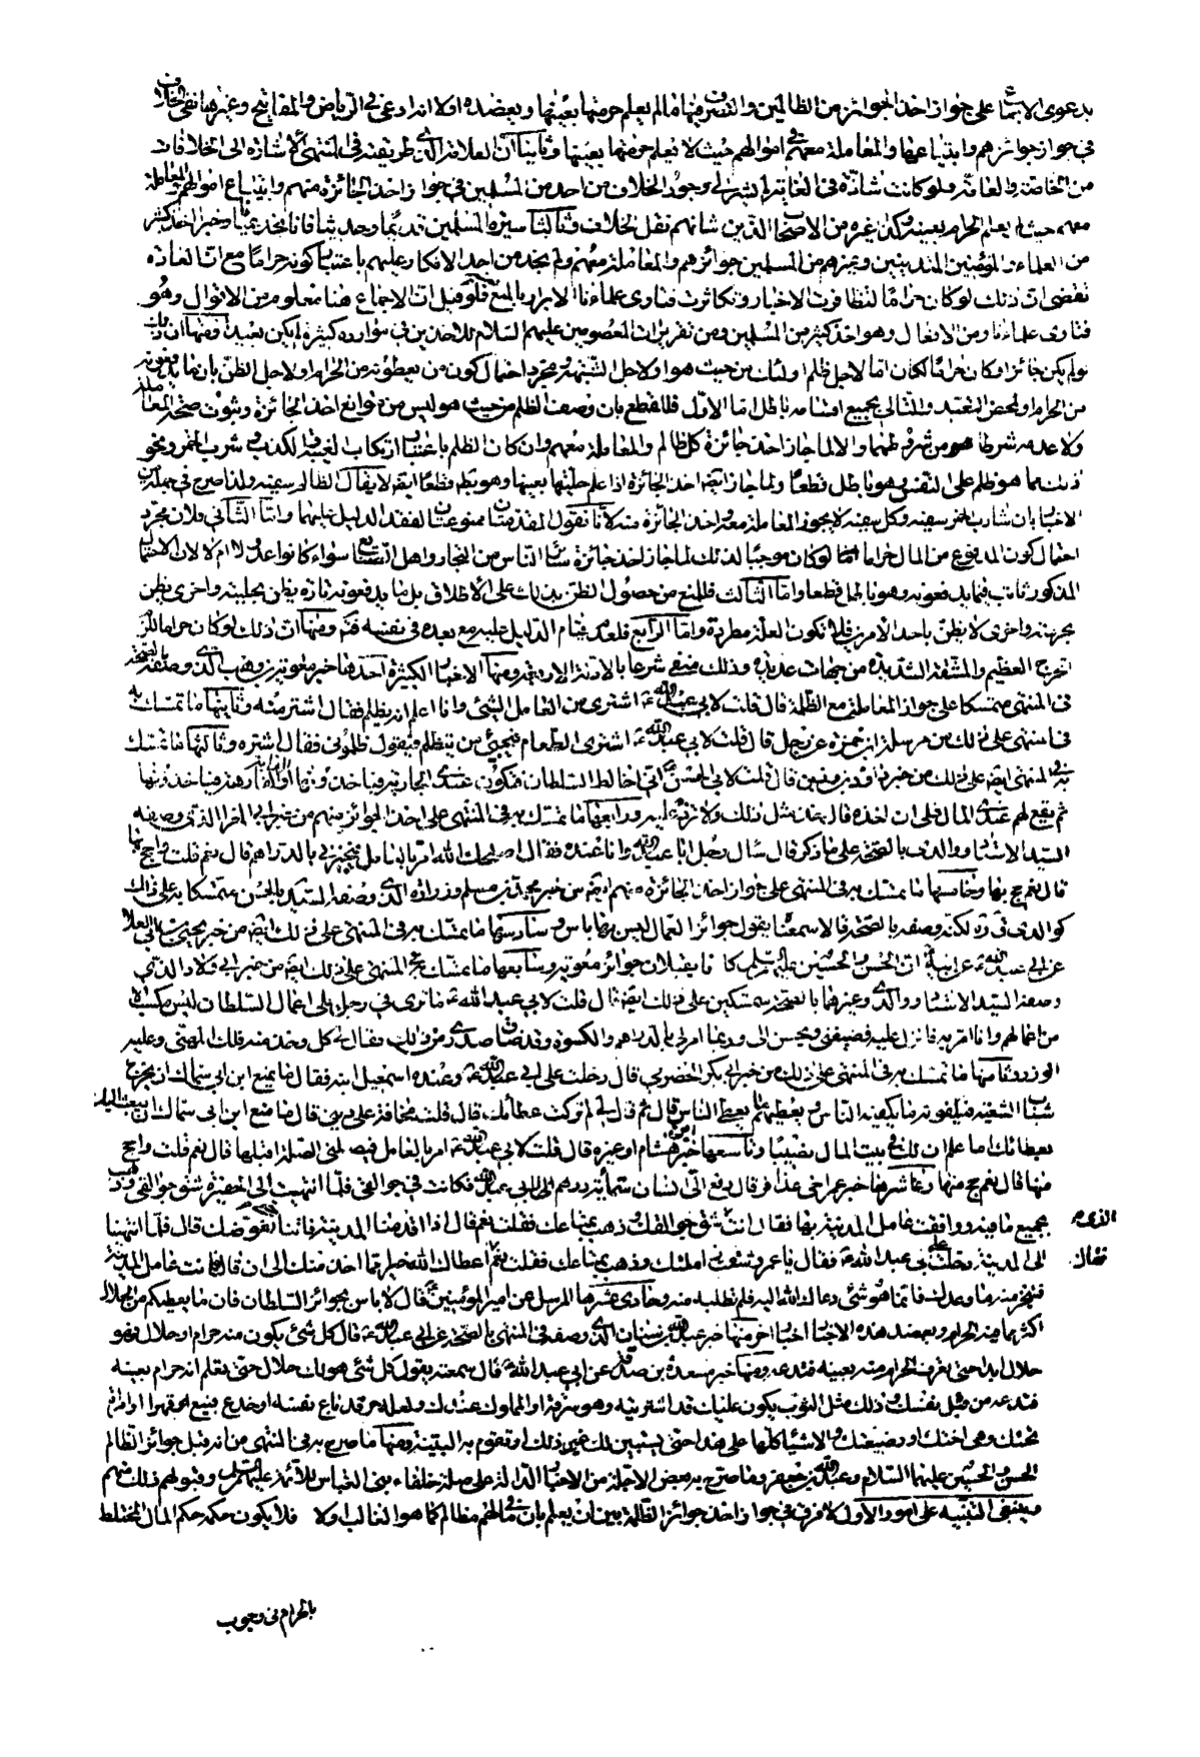 بدعوى الاجماع على جواز اخذ الجوائز من الظالمين والتصرف فيها ما لم يعلم حرمتها بعينها ويعضده اولا انه ادعى في الرياض والمفاتيح وغيرهما نفى الخلاف
في جواز جوائزهم وابتياعها والمعاملة معهم في اموالهم حيث لا نعلم حرمتها بعينها وثانيا ان العلامة الذي طريقته في المنتهى الاشارة الى اخلافات
من الخاصة والعامة ولو كانت شاذة في الغاية لم يشر الى وجود الخلاف من احد من المسلمين في جواز اخذ الجائزة منهم وابتياع اموالهم والمعاملة
معهم حيث لم يعلم الحرام بعينه وكذا غيره من الاصحاب الذين شانهم نقل الخلاف وثالثا سيرة المسلمين قديما وحديثا فانا نجد
من العلماء والمؤمنين المتدينين وغيرهم من المسلمين جوائزهم والمعاملة معهم ولم يجد من احد الانكار عليهم باعتبار كونه حراما مع ان العادة
تقضى ان ذلك لو كان حراما لتظافرت الاخبار وتكاثرت فتاوى علماءنا الابرار بالمنع فلو قيل ان الاجماع هنا معلوم من الاقوال وهو
فتاوى علماءنا ومن الافعال وهو اخذ كثير من المسلمين ومن تقريرات المعصومين عليهم السلام للاخذين في موارد كثيرة لم يكن بعيدا ومنها ان ذلك
لو لم يكن جائزا وكان حراما لكان اما لاجل ظلم اولئك من حيث هو او لاجل الشبهة ومجرد احتمال كون من يعطونه من الحرام او لاجل الظن بان ما يدفعونه
من الحرام او لمحض التعبد والتالى بجميع اقسامه باطل اما الاول فللقطع بان وصف الظلم من حيث هو ليس من موانع اخذ الجائزة وثبوت صحة المعاملة
ولا عدمه شرطا هو من شروطها والا لما جاز اخذ جائزة كل ظالم والمعاملة معهم وان كان الظلم باعتبار ارتكاب الغيبة والكذب و شرب الخمر ونحو
ذلك مما هو ظلم على النفس وهو باطل قطعا ولما جاز ايضا اخذ الجائزة اذا علم حليتها بعينها وهو بط قطعا ايضا لا يقال الظالم سفيه ولذا صرح في جملة من
الاخبار بان شارب الخمر سفيه وكل سفيه لا يجوز المعاملة معه واخذ الجائزة منه لانا نقول المقدمتان ممنوعتان لفقد الدليل عليهما واما الثانى فلان مجرد
احتمال كون المدفوع من المال حراما لو كان موجبا لذلك لما جاز اخذ جائزة سائر الناس من التجار واهل الصنايع سواء كانوا عدولا ام لا لان الاحتمال
المذكور ثابت فيما يدفعونه وهو باطل قطعا واما الثالث فللمنع من حصول الظن بذلك على الاطلاق بل ما يدفعونه تارة يظن بحليته واخرى يظن
بحرمته واخرى لا يظن باحد الامرين فلا تكون العلة مطردة واما الرابع فلعدم قيام الدليل عليه مع بعده في نفسه فتم ومنها ان ذلك لو كان حراما للزم
الحرج العظيم والمشقة الشديدة من جهات عديدة وذلك منفى شرعا بالادلة الاربعة ومنها الاخبار الكثيرة احدها خبر معوية بن وهب الذى وصفه بالصحة
في المنتهى متمسكا على جواز المعاملة مع الظلمة قال قلت لابي عبد الله ع اشترى من العامل الشئ وانا اعلم انه يظلم فقال اشتر منه وثانيها ما تمسك به
في المنتهى على ذلك من مرسلة ابن حمزة عن رجل قال قلت لابي عبد الله ع اشترى الطعام فيجيئ من يتظلم فيقول ظلموني فقال اشتره وثالثها ما تمسك
به في المنتهى ايضا على ذلك من خبر
ثم يقع لهم عندى المال فلى ان اخذه قال خذ مثل ذلك ولا تزد عليه ورابعها ما تمسك به في المنتهى على اخذ الجوائز منهم من خبر ابى المغرا الذى وصفه
السيد الاستاد والوالد بالصحة على ما ذكر قال سال رجل ابا عبد الله وانا عنده فقال اصلحك الله امر بالعامل فيجيزنى بالدراهم قال نعم قلت واحج بها
قال نعم حج بها وخامسها ما تمسك به في المنتهى على جواز اخذ الجائزة منهم ايضا من خبر محمد بن مسلم وزرارة الذى وصفه السيد بالحسن متمسكا به على ذلك
كوالدى قدس سره لكنه وصفه بالصحة قالا سمعناه يقول جوائز العمال ليس بها باس وسادسها ما تمسك به في المنتهى على ذلك ايضا من خبر يحيى بن ابى العلاء
عن ابى عبد الله ع عن ابيه ان الحسن والحسين عليهما السلام كانا يقبلان جوائز معوية وسابعها ما تمسك به في المنتهى على ذلك ايضا من خبر ابى ولاد الذى
وصفه السيد الاستاد ووالدى وغيرهما بالصحة متمسكين على ذلك ايضا قال قلت لابي عبد الله ع ما ترى في رجل يلى اعمال السلطان ليس له مكسب الا
من اعمالهم وانا امر به فانزل عليه فيضيفنى ويحسن الى وربما امر لى بالدراهم والكسوة وقد ضاق صدرى من ذلك فقال لى كل وخذ منه فلك المهنى وعليه
الوزر وثامنها ما تمسك به في المنتهى على ذلك من خبر ابى بكر الحضرمى قال دخلت على ابى عبد الله ع وعنده اسمعيل ابنه فقال ما يمنع ابن ابى سماك ان يخرج
شباب الشيعة فيكفونه ما يكفيه الناس ويعطيهم ما يعطى الناس قال ثم قال لى لم تركت عطائك قال قلت مخافة على دينى قال ما منع ابن ابى سماك ان يبعث اليك
بعطائك اما علم ان لك في بيت المال نصيبا وتاسعها خبر محمد بن هشام او غيره قال قلت لابي عبد الله ع امر بالعامل فيصلنى الصلة اقبلها قال نعم قلت واحج
منها قال نعم حج منها وعاشرها خبر عمر اخى عذافر قال دفع الى انسان ستمائة درهم لابي عبد الله ع فكانت في جوالقى فلما انتهيت الى الحفيرة شق جوالقى وذهب
بجميع ما فيه ووافقت عامل المدينة بها فقال انت الذى شق جوالقك وذهب بمتاعك فقلت نعم قال اذا قدمنا المدينة فائتنا نعوضك قال فلما انتهينا
الى المدينة دخلت على ابى عبد الله ع فقال يا عمر شق زاملتك وذهب بمتاعك فقلت نعم فقال ما اعطاك الله خير مما اخذ منك الى ان قال فائت عامل المدينة
فتنجز منه ما وعدك فانما هو شئ دعاك الله اليه لم تطلبه منه وحادى عشرها المرسل عن امير المؤمنين ع قال لا باس بجوائز السلطان فان ما يعطيكم من الحلال
اكثر مما من الحرام ويعضد هذه الاخبار اخبار اخر منها خبر عبد الله بن سنان الذى وصفه في المنتهى بالصحة عن ابى عبد الله ع قال كل شئ يكون منه حرام وحلال فهو
حلال ابدا حتى تعرف الحرام منه بعينه فتدعه ومنها خبر مسعدة بن صدقة عن ابى عبد الله ع قال سمعته يقول كل شئ هو لك حلال حتى تعلم انه حرام بعينه
فتدعه من قبل نفسك وذلك مثل الثوب يكون عليك قد اشتريته وهو سرقة او المملوك عندك ولعله حر قد باع نفسه او خدع فبيع او قهر او امراة
تحتك وهى اختك او رضيعتك والاشياء كلها على هذا حتى يستبين لك غير ذلك او تقوم به البينة ومنها ما صرح به في المنتهى من انه قبل جوائز الظالم
الحسن والحسين عليهما السلام وعبد الله بن جعفر وما صرح به بعض الاجلة من الاخبار الدالة على صلة خلفاء بنى العباس للائمة عليهم السلام وقبولهم ذلك منهم
وينبغى التنبيه على امور الاول لا فرق في جواز اخذ جوائز الظلمة بين ان يعلم بان في مالهم مظالم كما هو الغالب او لا فلا يكون حكمه حكم المال المختلط
بالحرام في وجوب